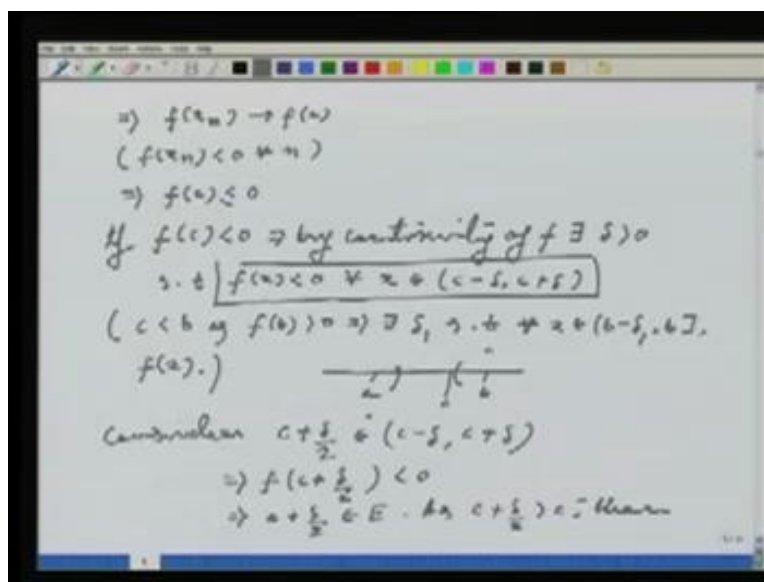 ⇒ f(xn) → f(c)
( f(xn) < 0 ∀ n )
⇒ f(c) ≤ 0
If f(c) < 0 ⇒ by continuity of f ∃ δ > 0
s.t f(x) < 0 ∀ x ∈ (c-δ, c+δ)
( c < b as f(b) > 0 ⇒ ∃ δ₁ s.t ∀ x ∈ (b-δ₁, b],
f(x). )
a c b
Consider c + δ/2 ∈ (c-δ, c+δ)
⇒ f(c + δ/2) < 0
⇒ c + δ/2 ∈ E. As c + δ/2 > c, then